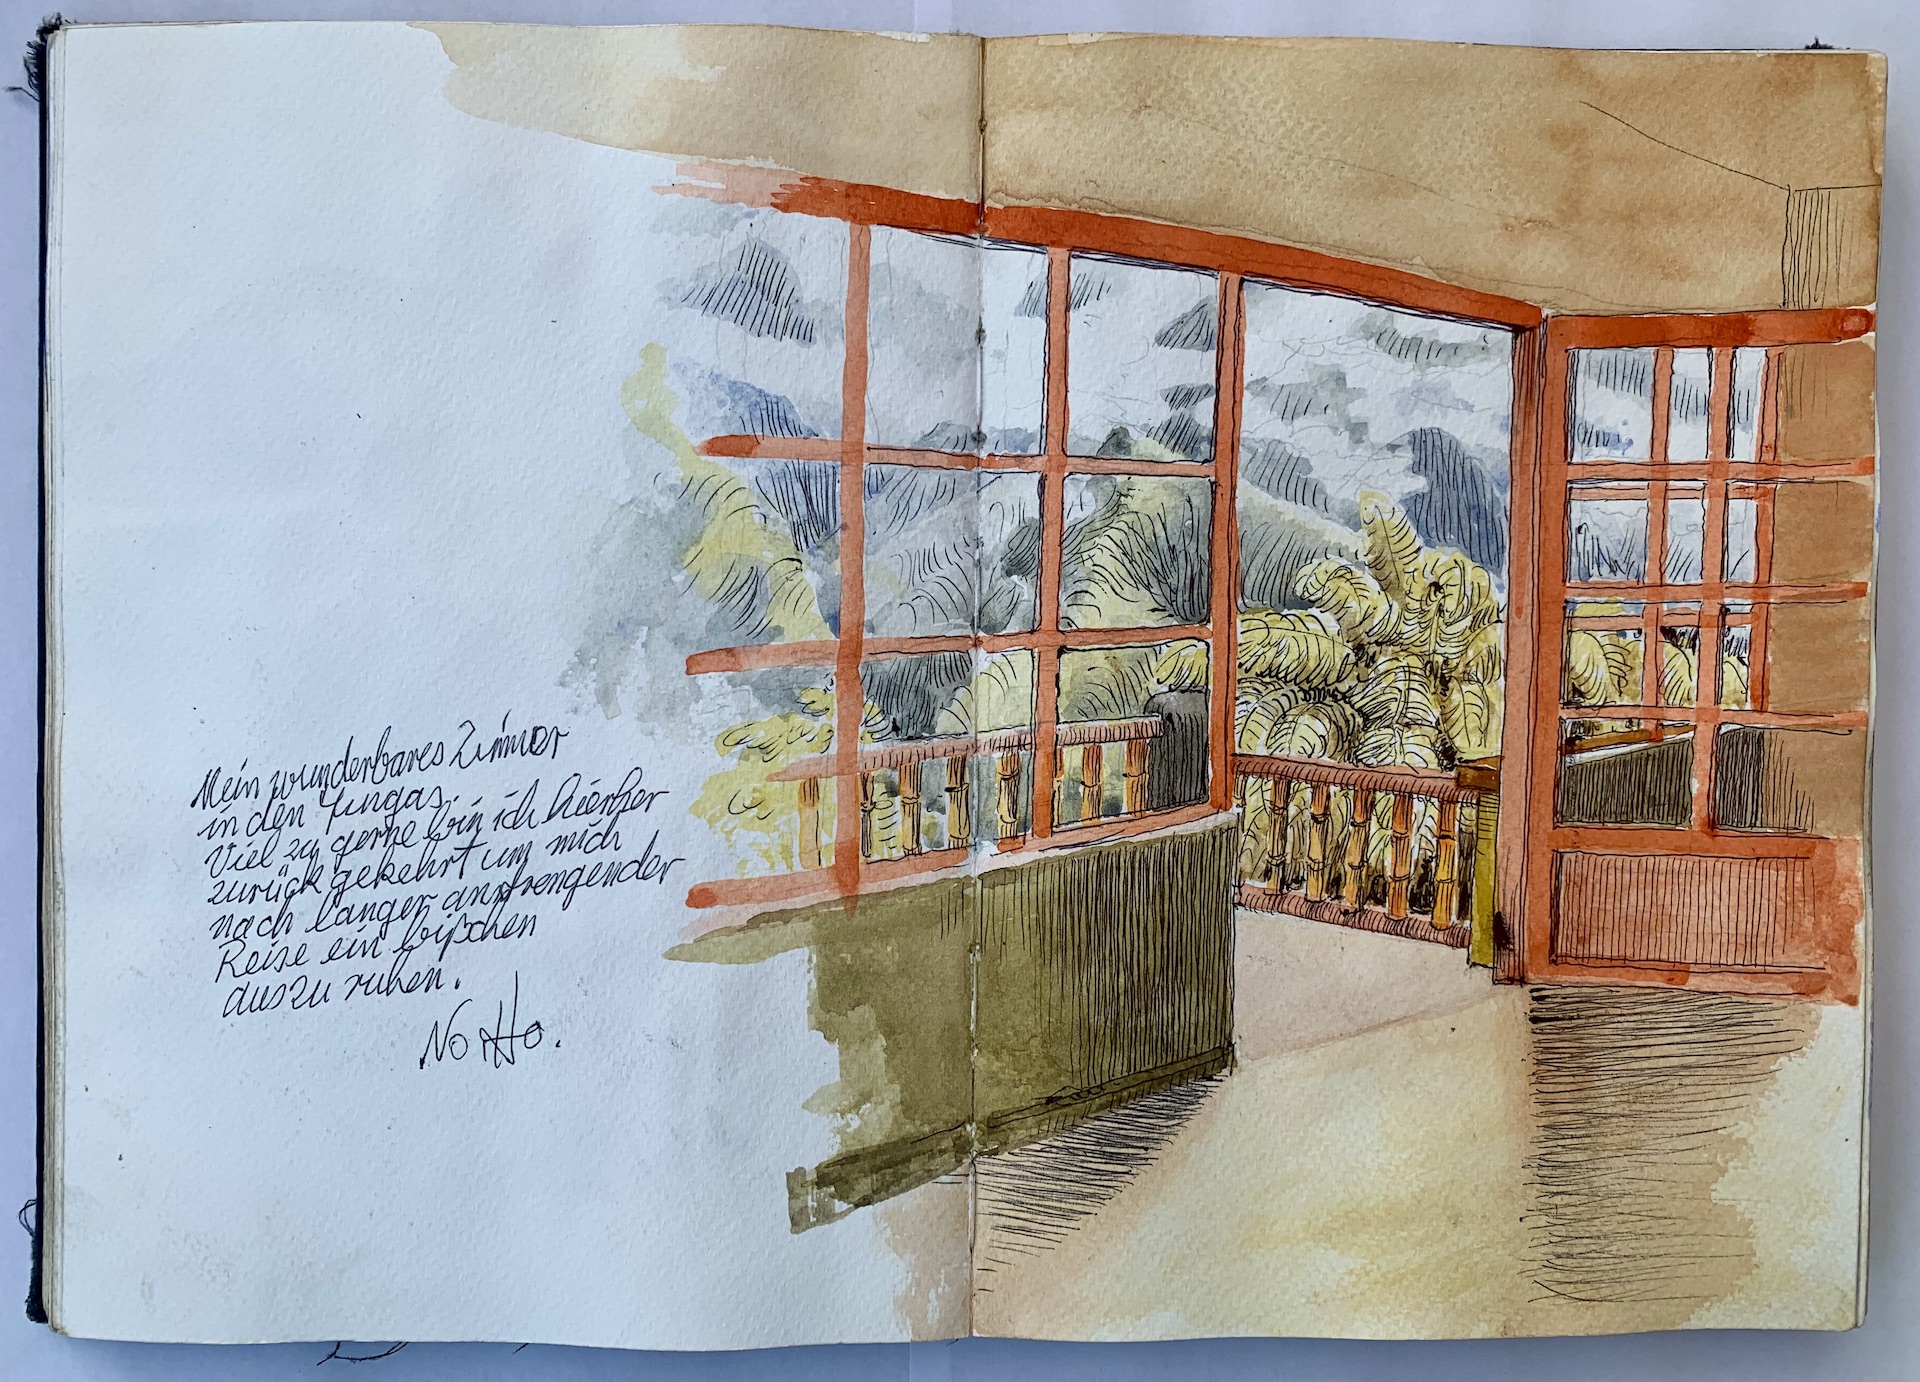 Mein wunderbares Zimmer
in den Yungas.
Viel zu gerne bin ich hierher
zurück gekehrt um mich
nach langer anstrengender
Reise ein bißchen
auszu ruhen.